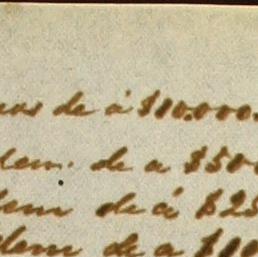 de á $10.000.
dem. de a $50
dem de á $25
dem de a $10